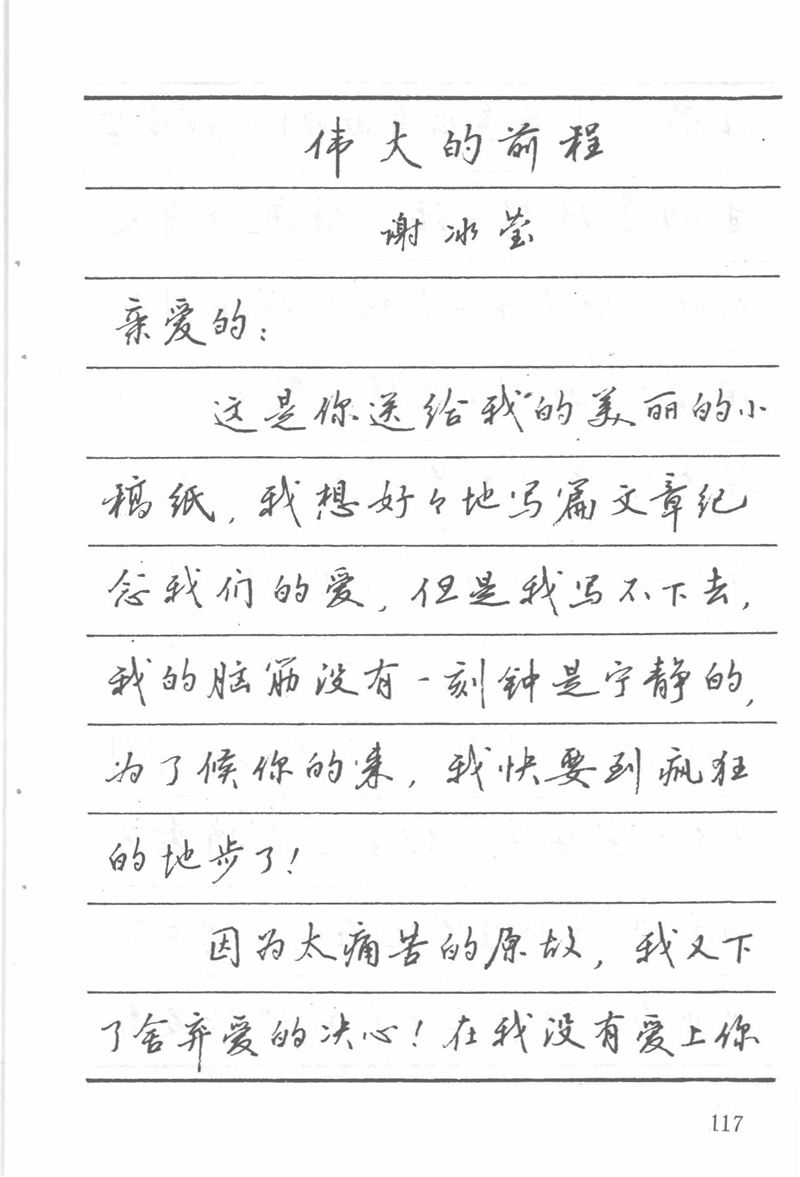 伟大的前程
谢冰莹
亲爱的：
这是你送给我的美丽的小
稿纸，我想好々地写篇文章纪
念我们的爱，但是我写不下去，
我的脑筋没有一刻钟是宁静的，
为了候你的来，我快要到疯狂
的地步了！
因为太痛苦的原故，我又下
了舍弃爱的决心！在我没有爱上你
117